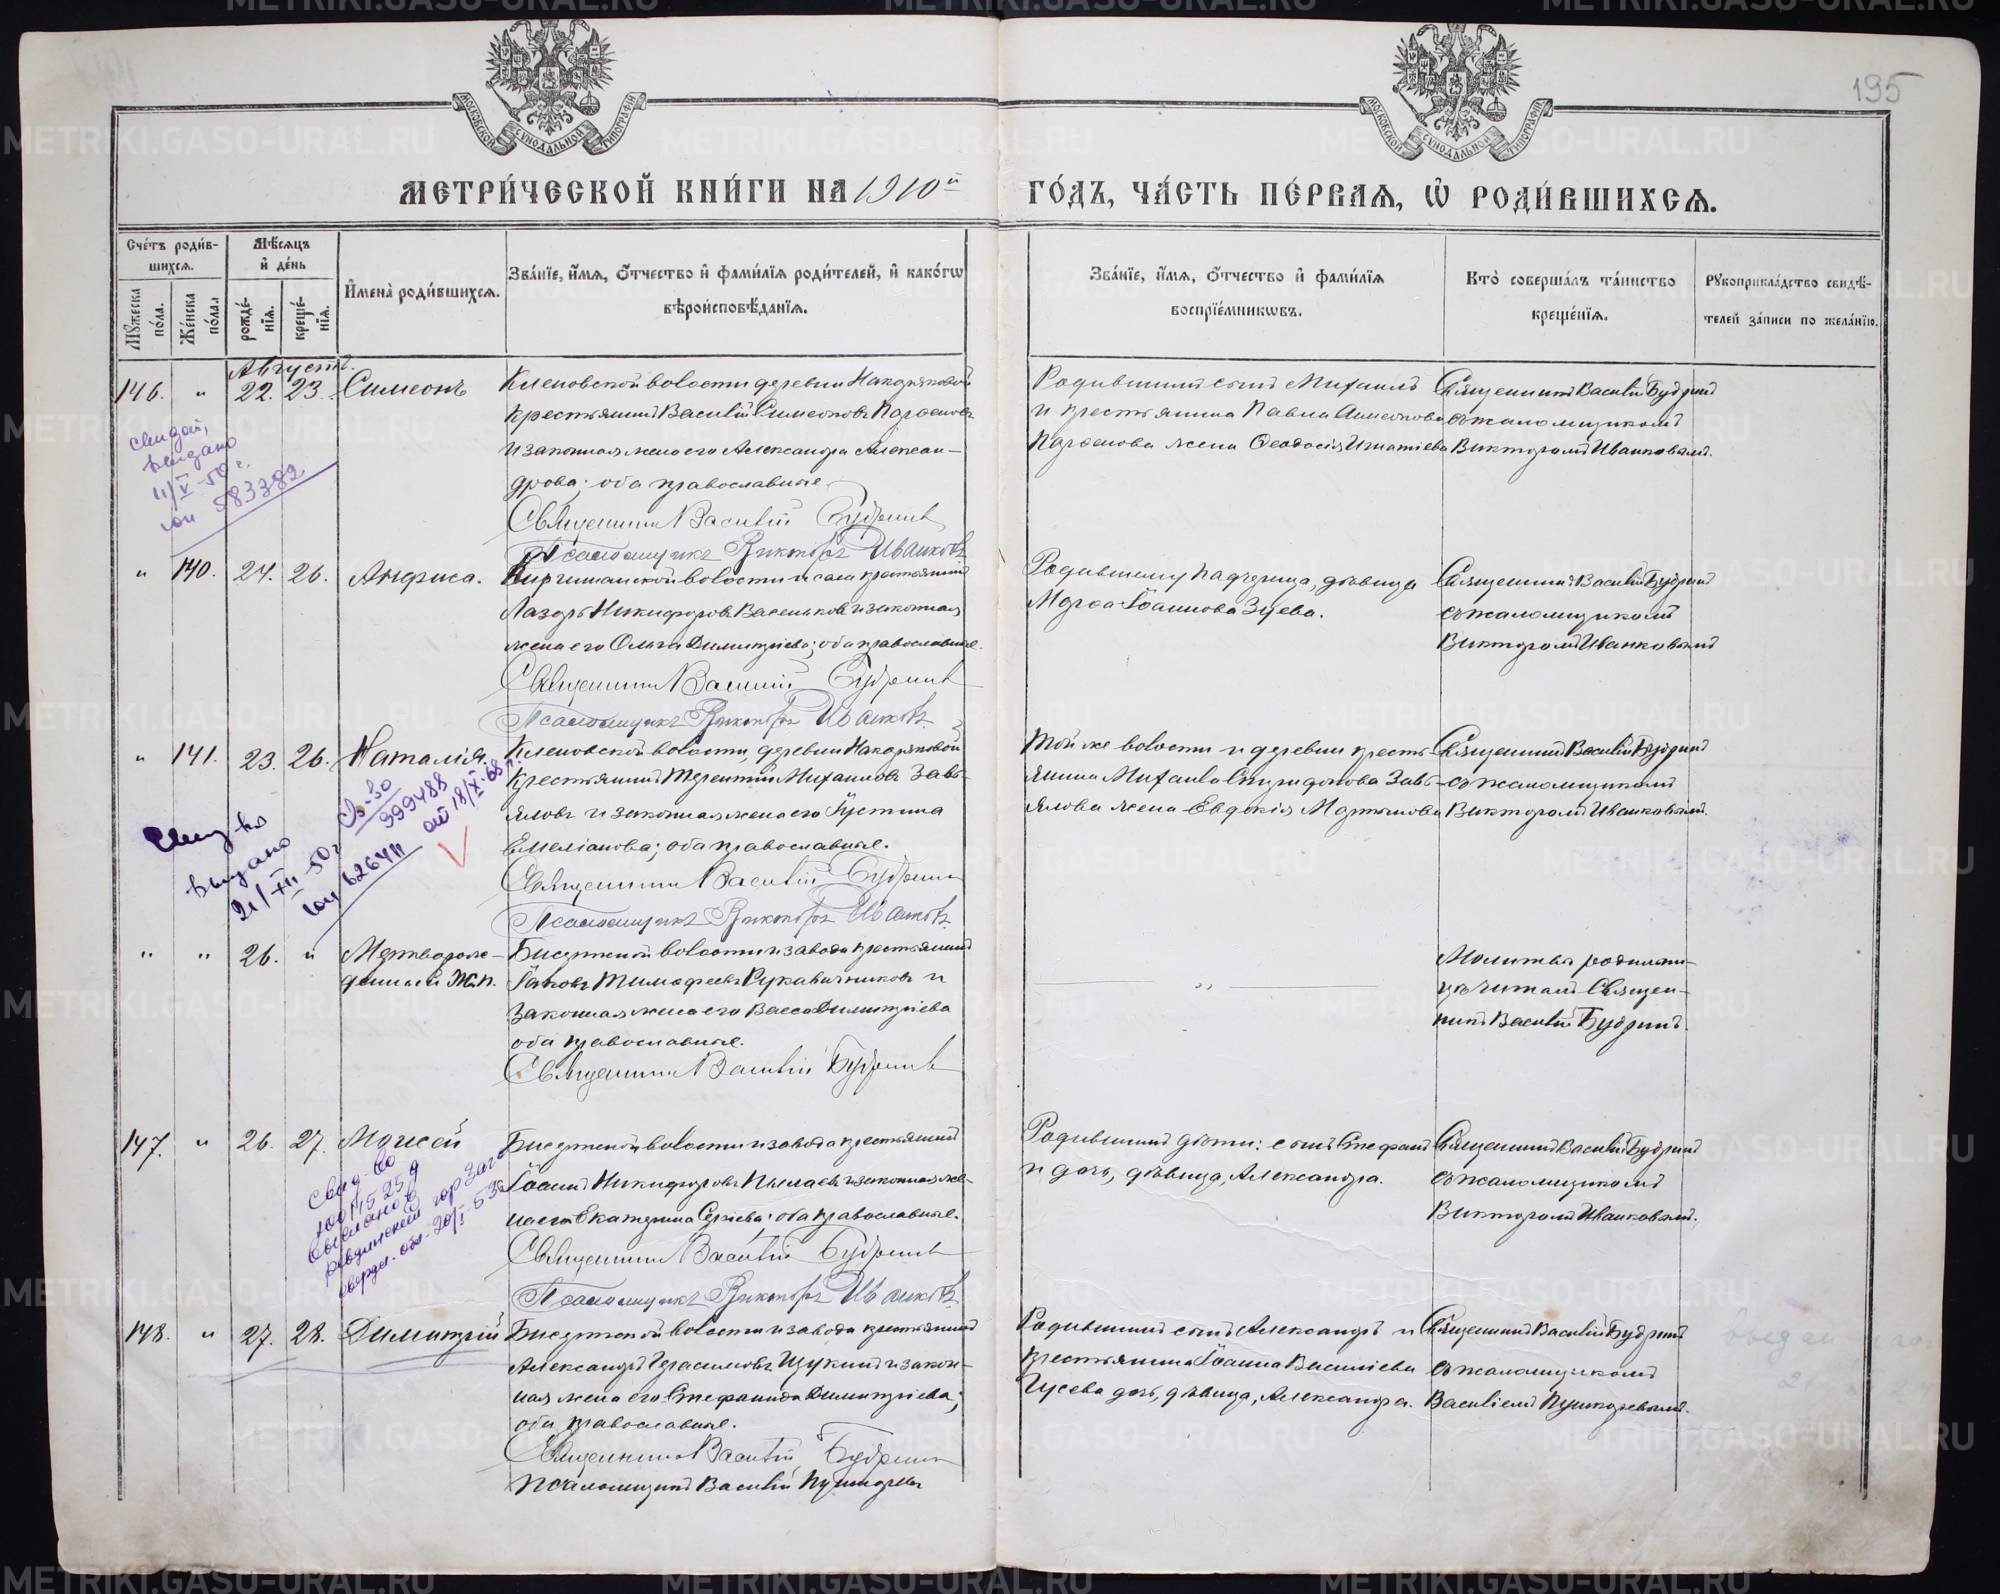 195
МОСКОВСКОЙ СѴНОДАЛЬНОЙ ТИПОГРАФІИ
МОСКОВСКОЙ СѴНОДАЛЬНОЙ ТИПОГРАФІИ
МЕТРИ́ЧЕСКОЙ КНИ́ГИ НА 1910й ГО́ДЪ, ЧА́СТЬ ПЕ́РВАЯ, Ѡ РОДИ́ВШИХСЯ.
Сче́тъ роди́в-
шихся.
Му́жеска по́ла.
Же́нска по́ла.
Мѣ́сяцъ
и де́нь
рожде́-
нїя.
креще́-
нїя.
Имена̀ роди́вшихся.
Зва́нїе, и́мя, о́тчество и фами́лїя роди́телей, и како́гѡ
вѣроисповѣ́данїя.
Зва́нїе, и́мя, о́тчество и фами́лїя
воспрїе́мникѡвъ.
Кто̀ соверша́лъ та́инство
креще́нїя.
Рукоприкла́дство свидѣ́-
телей за́писи по жела́нїю.
Августъ.
146. " 22. 23. Симеонъ
Кленовской волости деревни Накоряковой
крестьянинъ Василій Симеоновъ
и законная жена его Александра Алексан-
дрова; оба православные.
Священникъ Василій Будринъ
Псаломщикъ Викторъ Иванковъ
Родившимъ сынъ Михаилъ
и крестьянина Павла Симеонова
жена Феодосія Игнатіева
Священникъ Василій Будринъ
съ псаломщикомъ
Викторомъ Иванковымъ.
выдано
11/V-50 г.
583382
" 140. 24. 26. Анфиса.
Киргишанской волости и села крестьянинъ
Лазарь Никифоровъ Васеньковъ и законная
жена его Ольга Димитріева; оба православные.
Священникъ Василій Будринъ
Псаломщикъ Викторъ Иванковъ
Родившему падчерица, дѣвица
Марѳа Іоаннова Зуева.
Священникъ Василій Будринъ
съ псаломщикомъ
Викторомъ Иванковымъ
" 141. 23. 26. Наталія.
Кленовской волости, деревни Накоряковой
крестьянинъ Терентій Михаиловъ Завь-
яловъ и законная жена его Іустина
Емеліанова; оба православные.
Священникъ Василій Будринъ
Псаломщикъ Викторъ Иванковъ
Той же волости и деревни кресть-
янина Михаила Спиридонова Завь-
ялова жена Евдокія Мартынова
Священникъ Василій Будринъ
съ псаломщикомъ
Викторомъ Иванковымъ.
Св-во
999488
от 18/XI-68 г.
выдано
21/XII-50 г
626411
" " 26. " Мертворож-
денный Ж.п.
Бисертской волости и завода крестьянинъ
Іаковъ Тимофеевъ Рукавичниковъ и
законная жена его Васса Димитріева
оба православные.
Священникъ Василій Будринъ
"
Молитвы родильни-
цѣ читалъ Священ-
никъ Василій Будринъ.
147. " 26. 27. Моисей
Бисертской волости и завода крестьянинъ
Іоаннъ Никифоровъ Пылаевъ и законная же-
на его Екатерина Сергіева; оба православные.
Священникъ Василій Будринъ
Псаломщикъ Викторъ Иванковъ
Родившимъ дѣти: сынъ Стефанъ
и дочь, дѣвица, Александра.
Священникъ Василій Будринъ
съ псаломщикомъ
Викторомъ Иванковымъ.
Свид-во
выслано в
ревдинский гор Загс
свердл. обл. 20/I-53г
148. " 27. 28. Димитрій
Бисертской волости и завода крестьянинъ
Александръ Герасимовъ Щукинъ и закон-
ная жена его Стефанида Димитріева;
оба православные.
Священникъ Василій Будринъ
Псаломщикъ Василій Пушкаревъ
Родившимъ сынъ Александръ и
крестьянина Іоанна Василіева
Гусева дочь, дѣвица, Александра.
Священникъ Василій Будринъ
съ псаломщикомъ
Василіемъ Пушкаревымъ.
METRIKI.GASO-URAL.RU